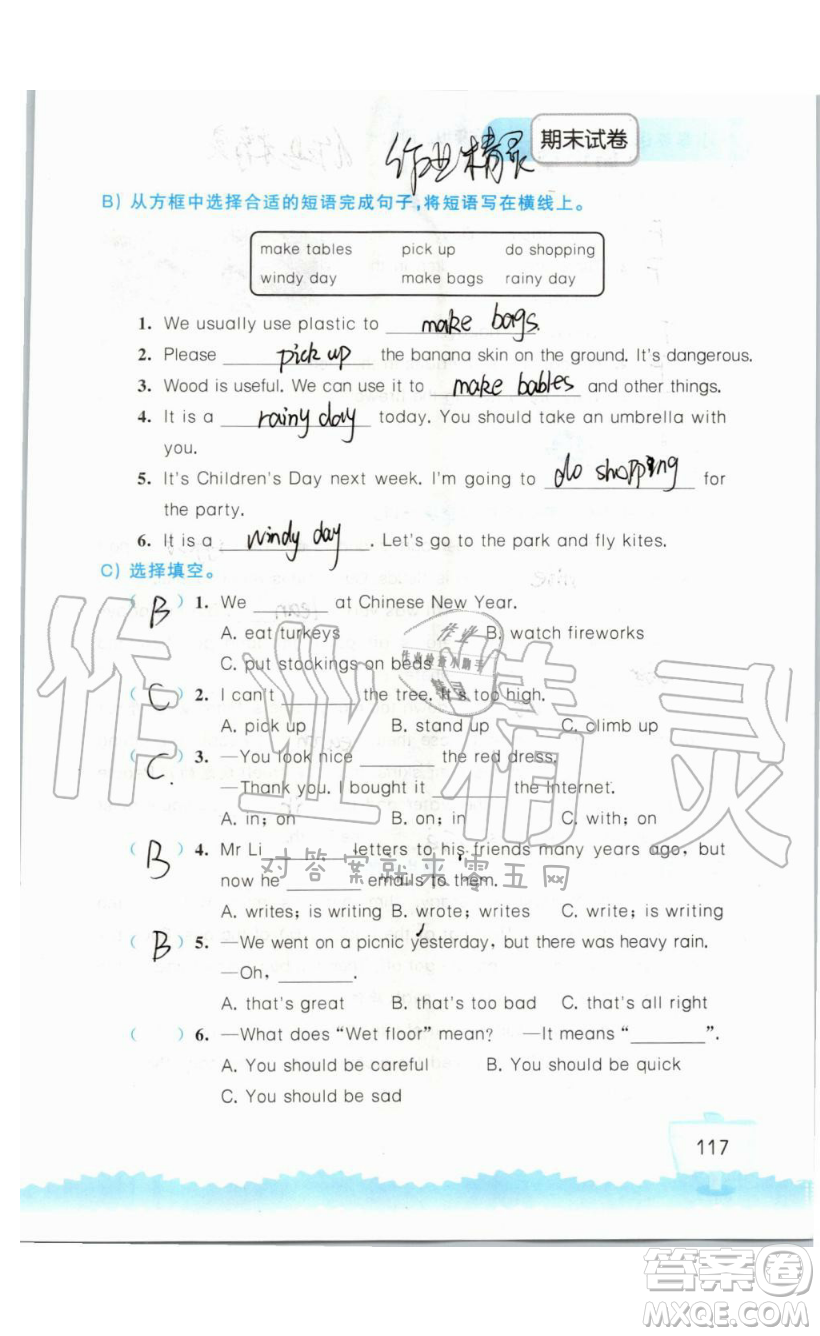 作业精灵
期末试卷
B) 从方框中选择合适的短语完成句子,将短语写在横线上。
make tables pick up do shopping
windy day make bags rainy day
1. We usually use plastic to make bags.
2. Please pick up the banana skin on the ground. It's dangerous.
3. Wood is useful. We can use it to make bables and other things.
4. It is a rainy day today. You should take an umbrella with
you.
5. It's Children's Day next week. I'm going to do shopping for
the party.
6. It is a windy day. Let's go to the park and fly kites.
C) 选择填空。
( B ) 1. We ________ at Chinese New Year.
A. eat turkeys B. watch fireworks
C. put stockings on beds
( C ) 2. I can't ________ the tree. It's too high.
A. pick up B. stand up C. climb up
( C ) 3. —You look nice ________ the red dress.
—Thank you. I bought it ________ the Internet.
A. in; on B. on; in C. with; on
( B ) 4. Mr Li ________ letters to his friends many years ago, but
now he ________ emails to them.
A. writes; is writing B. wrote; writes C. write; is writing
( B ) 5. —We went on a picnic yesterday, but there was heavy rain.
—Oh, ________.
A. that's great B. that's too bad C. that's all right
( ) 6. —What does "Wet floor" mean? —It means "________".
A. You should be careful B. You should be quick
C. You should be sad
117
作业精灵
对答案就来零五网
答案圈
MXQE.COM